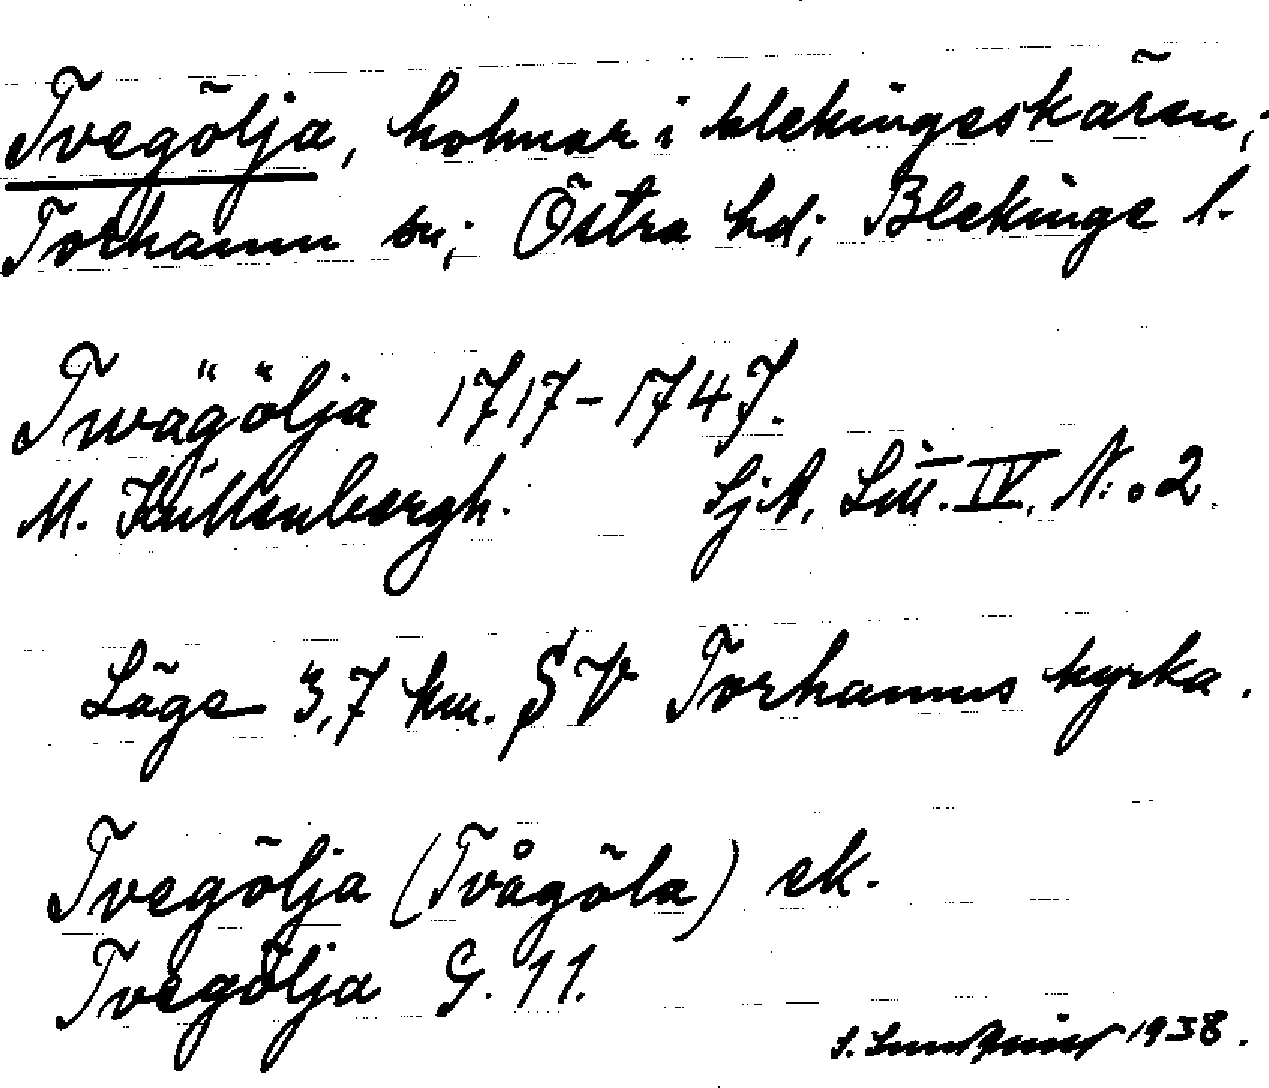 Tvegölja, holmar i blekingeskären;
Torhamn sn; Östra hd; Blekinge l.
Twägölja 1717-1747.
M. Kullenbergh. SjA. Litt. IV. N:o 2.
Läge 3,7 km. SV Torhamns kyrka.
Tvegölja (Tvågöla) ek.
Tvegölja G. 11.
1938.